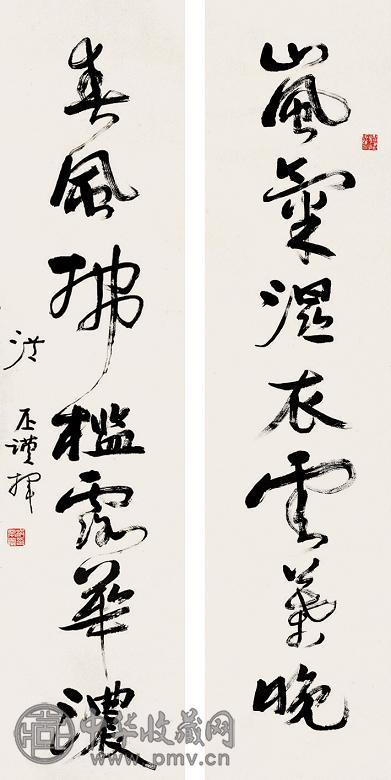 嵐氣濕衣雲葉晚
春風拂檻露華濃
洪丕謨揮
中华收藏网
www.pmv.cn